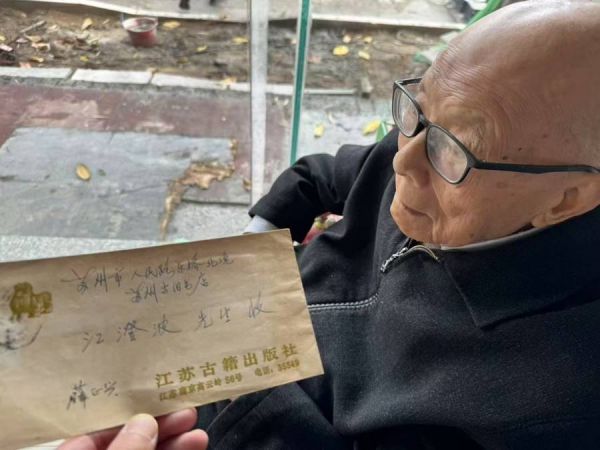 苏州市人民路乐桥北堍
苏州古旧书店
江澄波 先生 收
江苏古籍出版社
江苏南京高云岭56号 电话:35549
薛正兴